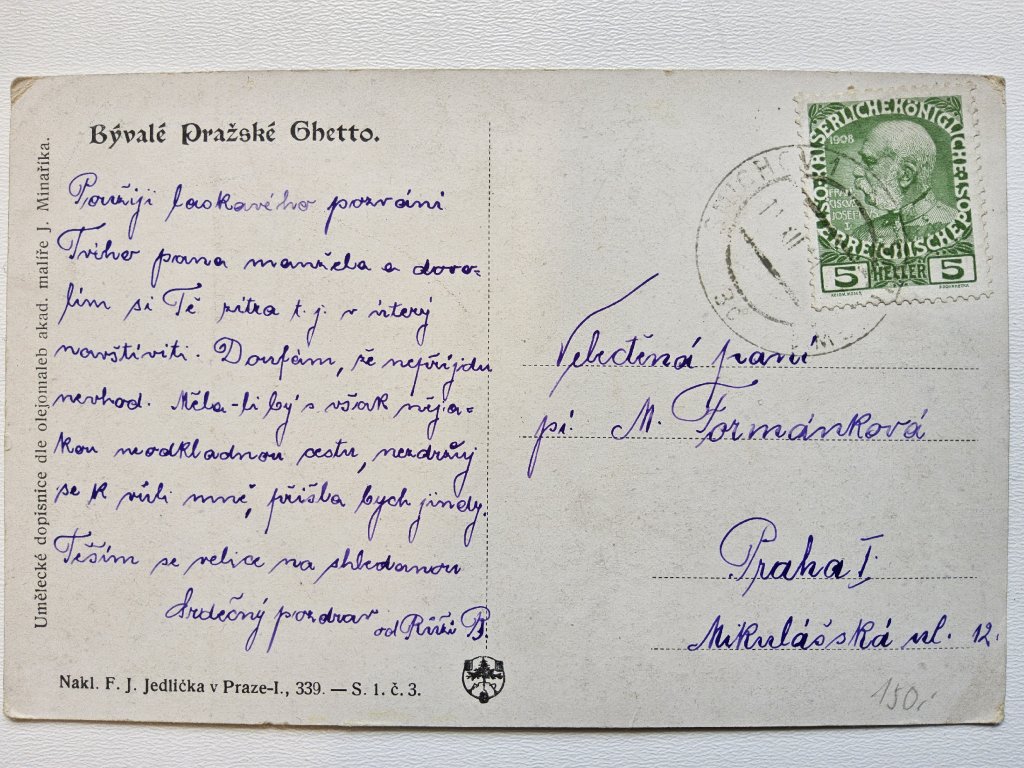 Bývalé Pražské Ghetto.
Použiji laskavého pozvání
Tvého pana manžela a dovo-
lím si Tě zítra t. j. v úterý
navštíviti. Doufám, že nepřijdu
nevhod. Měla-li by's však něja-
kou neodkladnou cestu, nezdržuj
se k vůli mně, přišla bych jindy.
Těším se velice na shledanou
Srdečný pozdrav
od Růži B.
Umělecké dopisnice dle olejomaleb akad. malíře J. Minaříka.
Nakl. F. J. Jedlička v Praze-I., 339. — S. 1. č. 3.
KAISERLICHE KÖNIGLICHE
ÖSTERREICHISCHE POST
1908
FRAN
CISCVS
JOSEF I
5 HELLER 5
SMICHOV
Velectěná paní
pí: M. Formánková
Praha I.
Mikulášská ul. 12.
150,-